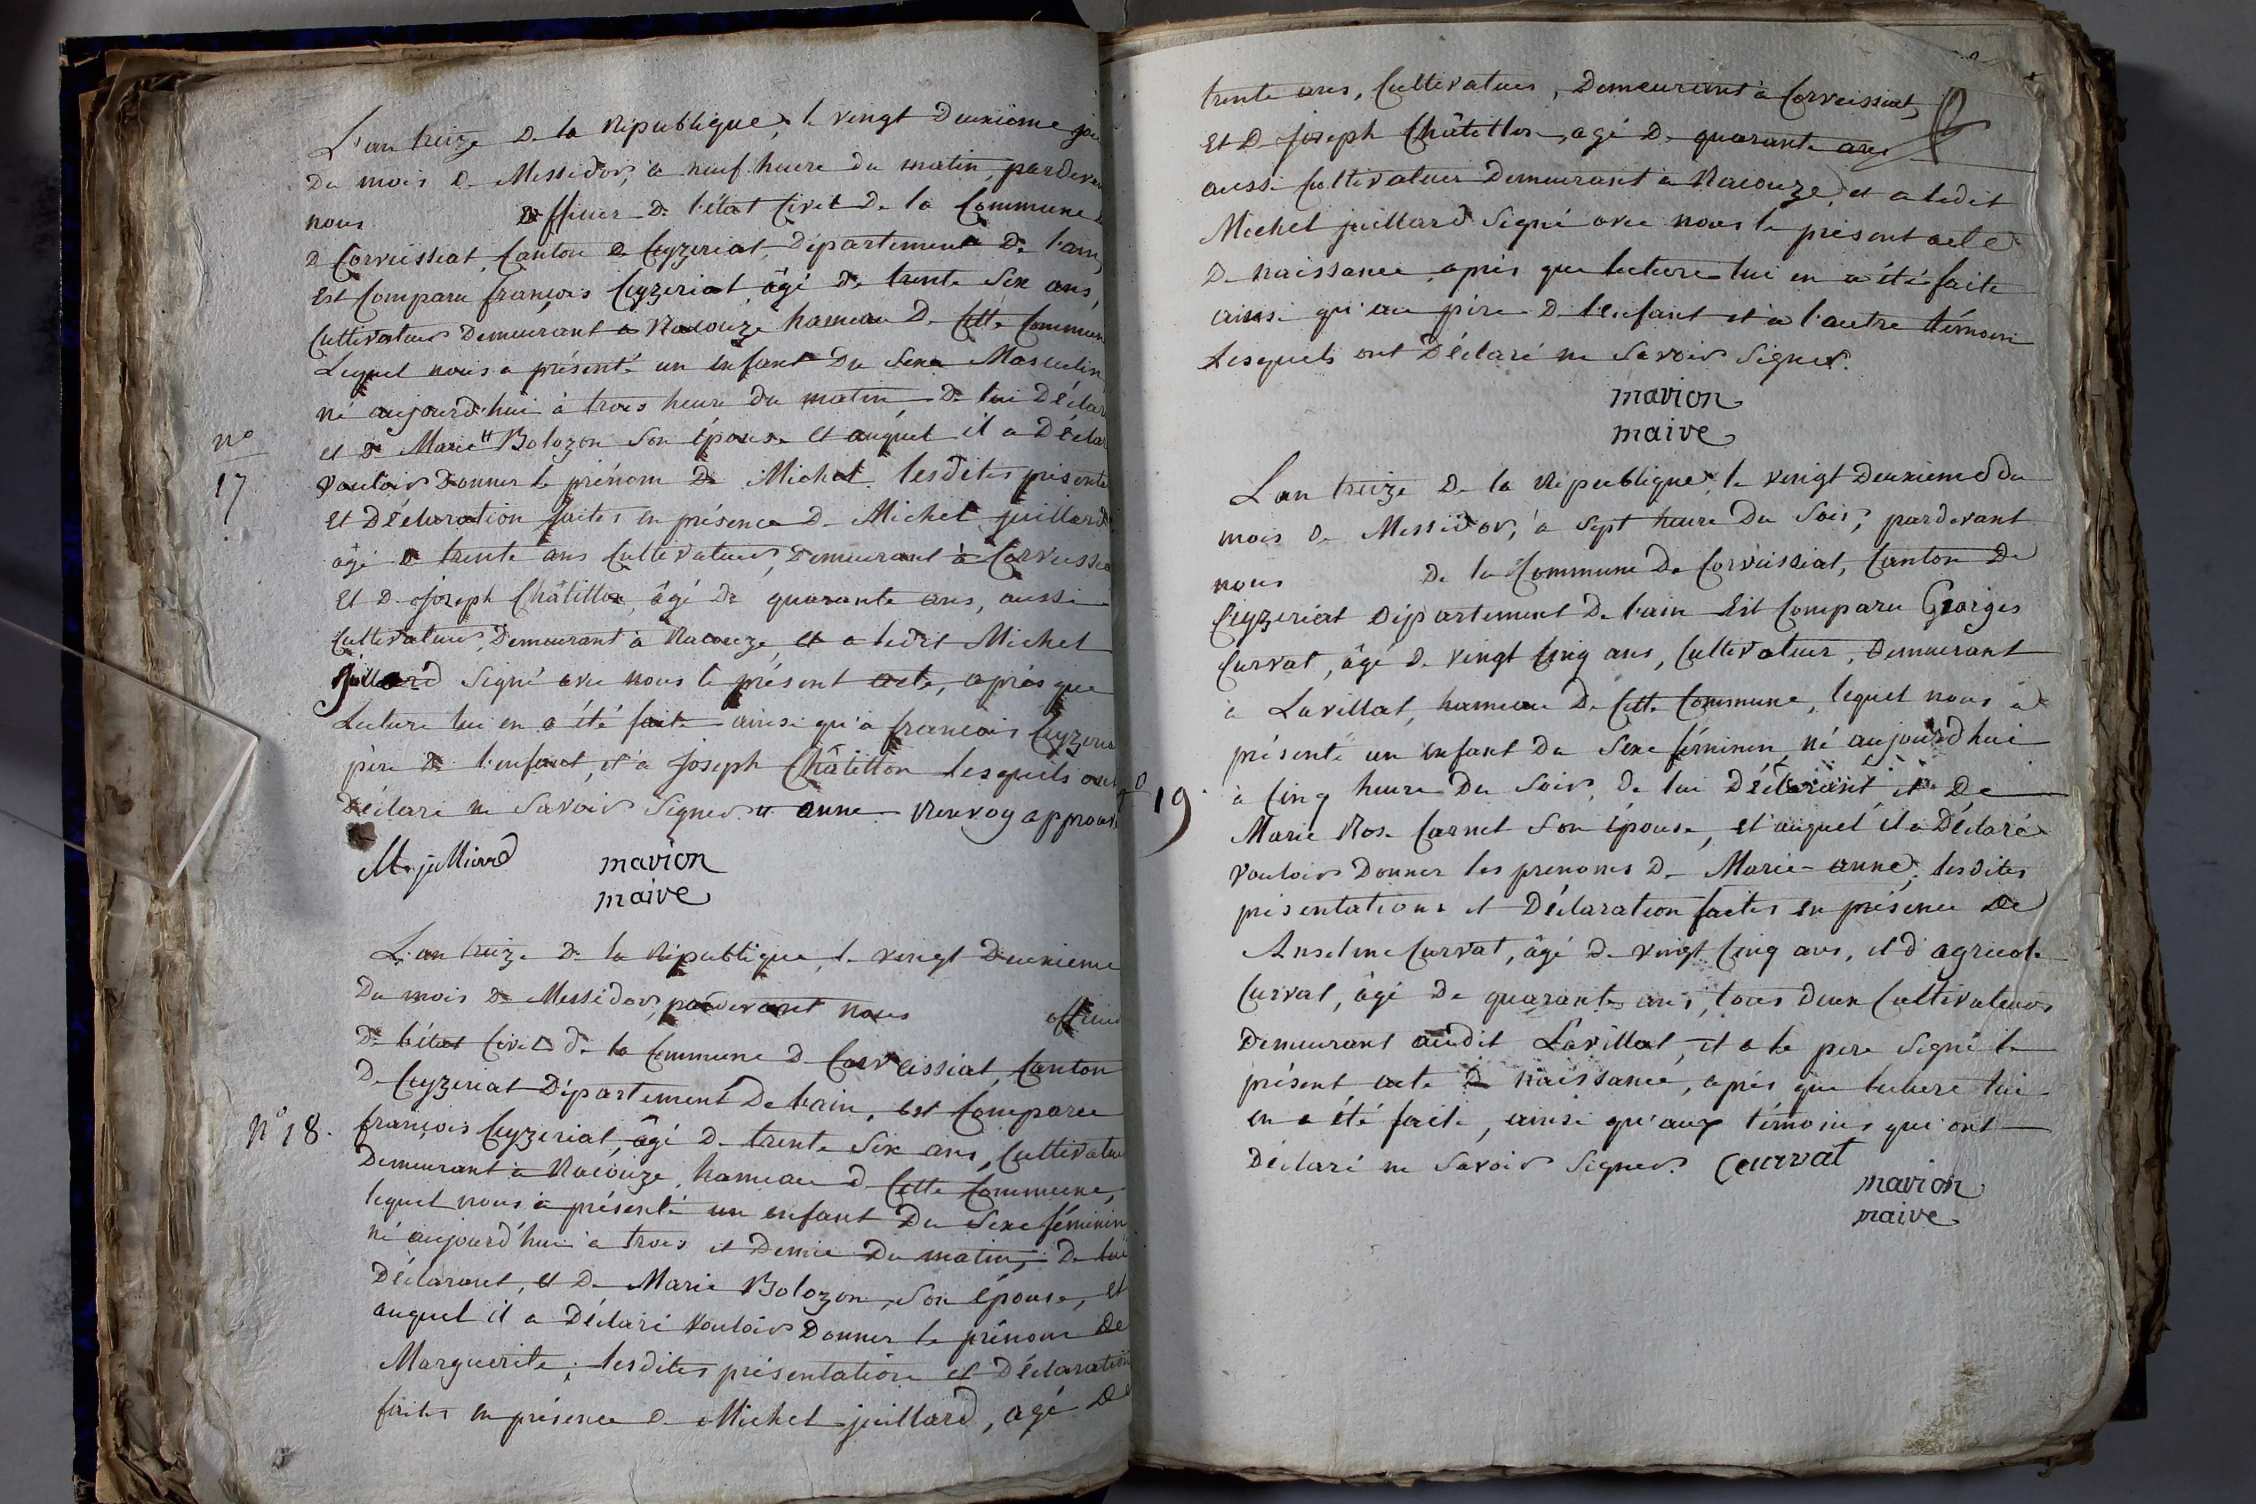 L'an treize de la République, le vingt deuxième jou
du mois de Messidor, à neuf heure du matin, pardevan
nous officier de l'état civil de la Commune
de Corveissiat, Canton de Ceyzeriat, Département de l'ain,
Est Comparu françois Ceyzeriat, âgé de trente six ans,
Cultivateur demeurant à Racouze hameau de Cette Commune
Lequel nous a présenté un enfant du sexe Masculin
né aujourd'hui à trois heure du matin de lui Déclar
n°
et de Marie " Bolozon son épouse et auquel il a Déclar
17
vouloir donner le prénom de Michel. lesdites présenta
Et Déclaration faites en présence de Michel juillard
âgé de trente ans Cultivateur, demeurant à Corveissia
Et de joseph Châtillon, âgé de quarante ans, aussi
Cultivateur, Demeurant à Racouze, et a ledit Michel
juillard signé avec nous le présent acte, après que
Lecture lui en a été faite ainsi qu'à françois Ceyzeria
père de l'enfant, et à Joseph Châtillon lesquels ont
Déclaré ne savoir signer. " anne Renvoy approuvé
M. juilliard marion
maire
L'an treize de la République, le vingt deuxieme
du mois de Messidor, pardevant nous officier
de l'état Civil de la Commune de Corveissiat, Canton
de Ceyzeriat Département de l'ain, est Comparu
n° 18.
françois Ceyzeriat, âgé de trente six ans, Cultivateu
Demeurant à Racouze, hameau de Cette Commune,
lequel nous a présenté un enfant du sexe féminin
né aujourd'hui à trois et demie du matin, de lui
Déclarant, et de Marie Bolozon, son épouse, et
auquel il a Déclaré vouloir Donner le prénom de
Marguerite, lesdites présentation et Déclaration
faites en présence de Michel juillard, agé de
trente ans, Cultivateur, Demeurant à Corveissiat,
Et de Joseph Châtillon, agé de quarante ans
aussi Cultivateur Demeurant à Racouze, et a ledit
Michel juillard signé avec nous le présent acte
de naissance, après que lecture lui en a été faite
ainsi qu'au père de l'enfant et à l'autre témoin
Lesquels ont Déclaré ne savoir signer.
marion
maire
L'an treize de la République, le vingt deuxieme du
mois de Messidor, à sept heure du soir, pardevant
nous de la Commune de Corveissiat, Canton de
Ceyzeriat Département de l'ain Est Comparu Georges
Curvat, âgé de vingt cinq ans, Cultivateur, Demeurant
à Lavillat, hameau de Cette Commune, lequel nous a
présenté un enfant du sexe féminin né aujourd'hui
n° 19
à cinq heure du soir, de lui Déclarant et De
Marie Rose Carnet son épouse, et auquel il a Déclaré
vouloir donner les prenoms de Marie-anne, lesdites
présentations et Déclaration faites en présence de
Anselme Curvat, âgé de vingt cinq ans, et d'agricole
Curvat, âgé de quarante ans, tous deux Cultivateurs
Demeurant audit Lavillat, et a le pere signé le
présent acte de naissance, après que lecture lui
en a été faite, ainsi qu'aux témoins qui ont
Déclaré ne savoir signer. Ceurvat
marion
maire